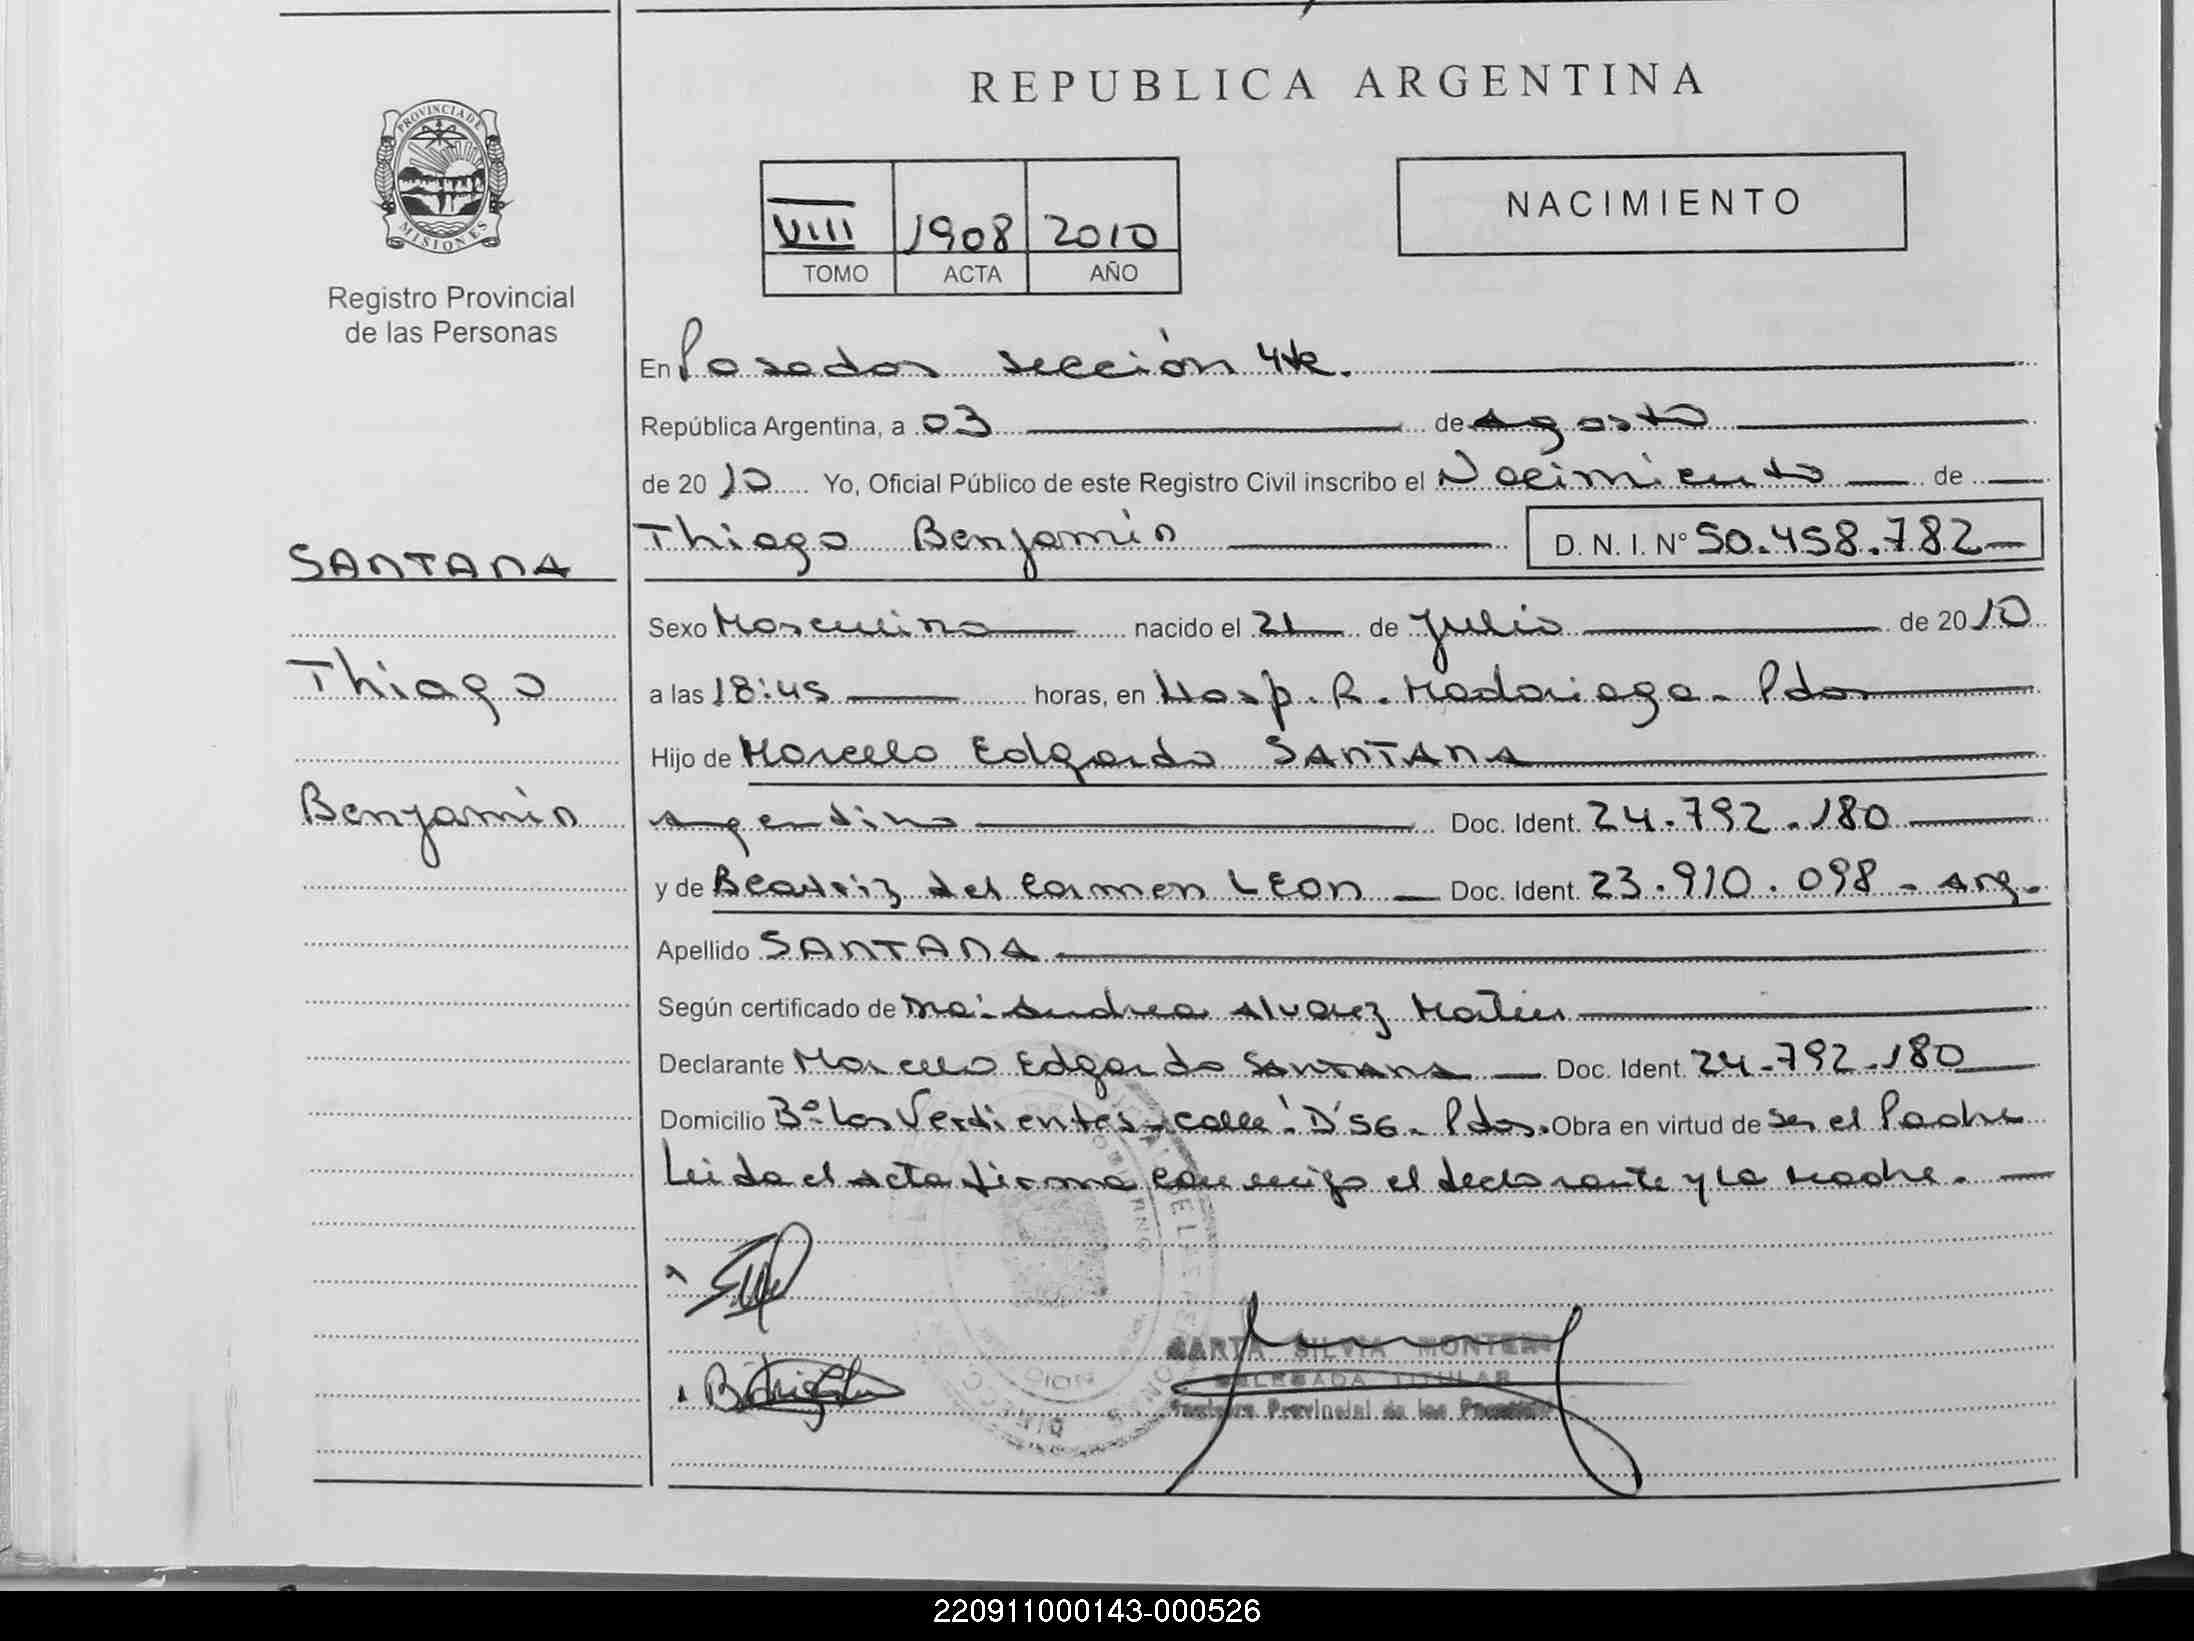 REPUBLICA ARGENTINA
PROVINCIA DE MISIONES
Registro Provincial
de las Personas
VIII 1908 2010
TOMO ACTA AÑO
NACIMIENTO
En Posadas sección 4ta.
República Argentina, a 03 de Agosto
de 2010 Yo, Oficial Público de este Registro Civil inscribo el Nacimiento de
Thiago Benjamín D. N. I. N° 50.458.782
SANTANA
Thiago
Benjamín
Sexo Masculino nacido el 21 de Julio de 2010
a las 18:45 horas, en Hosp. R. Madariaga - Pdas
Hijo de Marcelo Edgardo SANTANA
Argentino Doc. Ident. 24.792.180
y de Beatriz del Carmen LEON Doc. Ident. 23.910.098 - Arg.
Apellido SANTANA
Según certificado de Ma. Andrea Alvarez
Declarante Marcelo Edgardo SANTANA Doc. Ident. 24.792.180
Domicilio B° Los Verdientes - calle "D" 56 - Pdas. Obra en virtud de ser el Padre
Leida el acta firma conmigo el declarante y la madre.
MARTA SILVIA MONTERO
DELEGADA TITULAR
Registro Provincial de las Personas
220911000143-000526